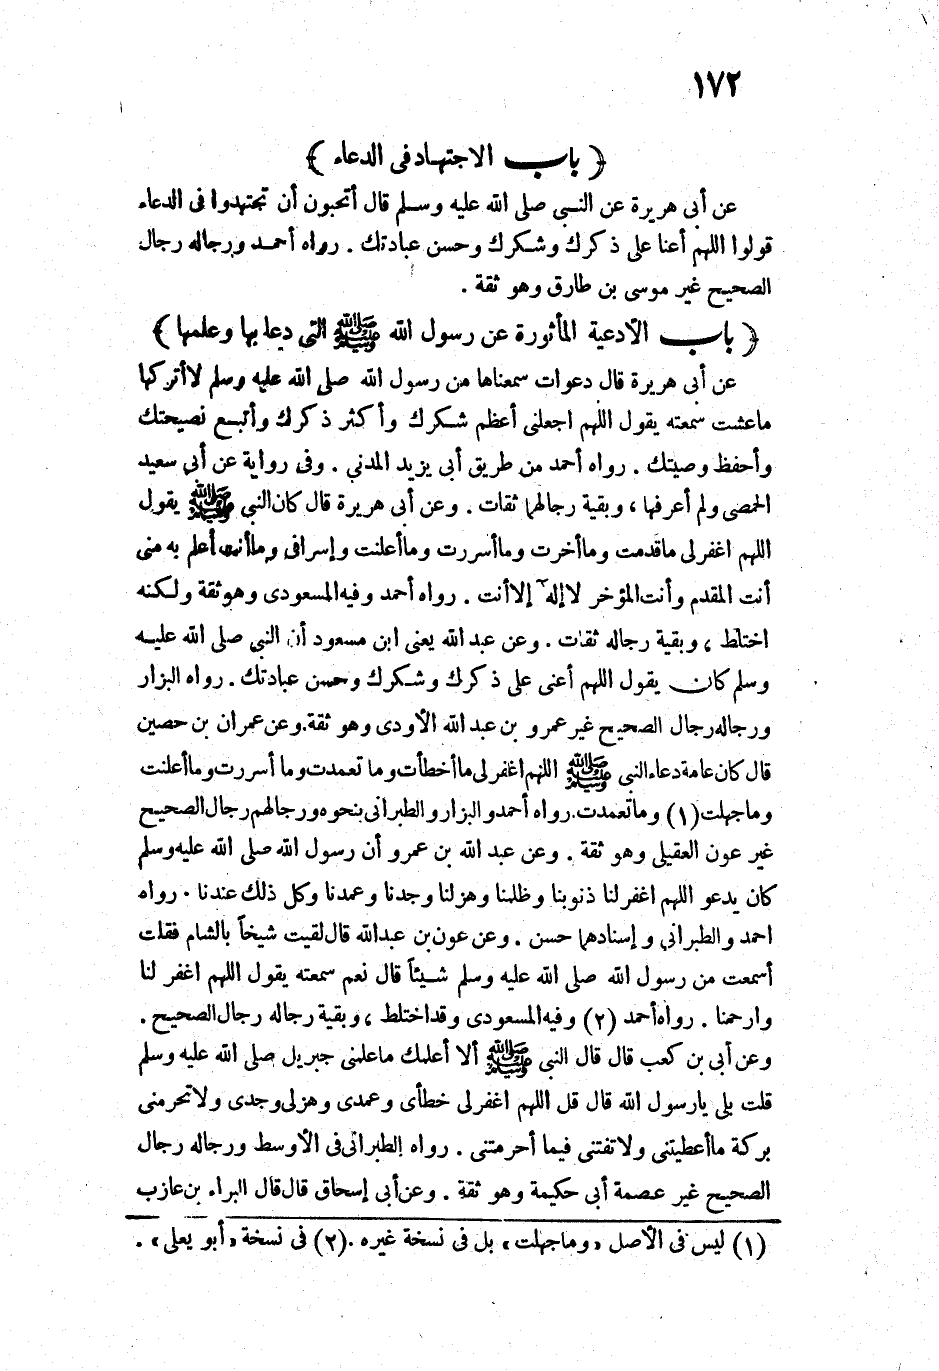 ١٧٢
﴿ باب الاجتهاد فى الدعاء ﴾
عن أبى هريرة عن النبى صلى الله عليه وسلم قال أتحبون أن تجتهدوا فى الدعاء
قولوا اللهم أعنا على ذكرك وشكرك وحسن عبادتك . رواه أحمد ورجاله رجال
الصحيح غير موسى بن طارق وهو ثقة .
﴿ باب الأدعية المأثورة عن رسول الله ﷺ التى دعا بها وعلمها ﴾
عن أبى هريرة قال دعوات سمعناها من رسول الله صلى الله عليه وسلم لا أتركها
ماعشت سمعته يقول اللهم اجعلنى أعظم شكرك وأكثر ذكرك وأتبع نصيحتك
وأحفظ وصيتك . رواه أحمد من طريق أبى يزيد المدنى . وفى رواية عن أبى سعيد
الحمصى ولم أعرفها ، وبقية رجالهما ثقات . وعن أبى هريرة قال كان النبى ﷺ يقول
اللهم اغفر لى ماقدمت وماأخرت وماأسررت وماأعلنت وإسرافى وماأنت أعلم به منى
أنت المقدم وأنت المؤخر لاإله إلاأنت . رواه أحمد وفيه المسعودى وهو ثقة ولكنه
اختلط ، وبقية رجاله ثقات . وعن عبد الله يعنى ابن مسعود أن النبى صلى الله عليه
وسلم كان يقول اللهم أعنى على ذكرك وشكرك وحسن عبادتك . رواه البزار
ورجاله رجال الصحيح غير عمرو بن عبد الله الأودى وهو ثقة . وعن عمران بن حصين
قال كان عامة دعاء النبى ﷺ اللهم اغفر لى ماأخطأت وما تعمدت وما أسررت وماأعلنت
وماجهلت (١) وماتعمدت . رواه أحمد والبزار والطبرانى بنحوه ورجالهم رجال الصحيح
غير عون العقيلى وهو ثقة . وعن عبد الله بن عمرو أن رسول الله صلى الله عليه وسلم
كان يدعو اللهم اغفر لنا ذنوبنا وظلمنا وهزلنا وجدنا وعمدنا وكل ذلك عندنا . رواه
احمد والطبرانى وإسنادهما حسن . وعن عون بن عبدالله قال لقيت شيخاً بالشام فقلت
أسمعت من رسول الله صلى الله عليه وسلم شيئاً قال نعم سمعته يقول اللهم اغفر لنا
وارحمنا . رواه أحمد (٢) وفيه المسعودى وقد اختلط ، وبقية رجاله رجال الصحيح .
وعن أبى بن كعب قال قال النبى ﷺ ألا أعلمك ماعلمنى جبريل صلى الله عليه وسلم
قلت بلى يارسول الله قال قل اللهم اغفر لى خطأى وعمدى وهزلى وجدى ولاتحرمنى
بركة ماأعطيتنى ولاتفتنى فيما أحرمتنى . رواه الطبرانى فى الأوسط ورجاله رجال
الصحيح غير عصمة أبى حكيمة وهو ثقة . وعن أبى إسحاق قال قال البراء بن عازب
(١) ليس فى الأصل «وماجهلت» بل فى نسخة غيره . (٢) فى نسخة «أبو يعلى» .